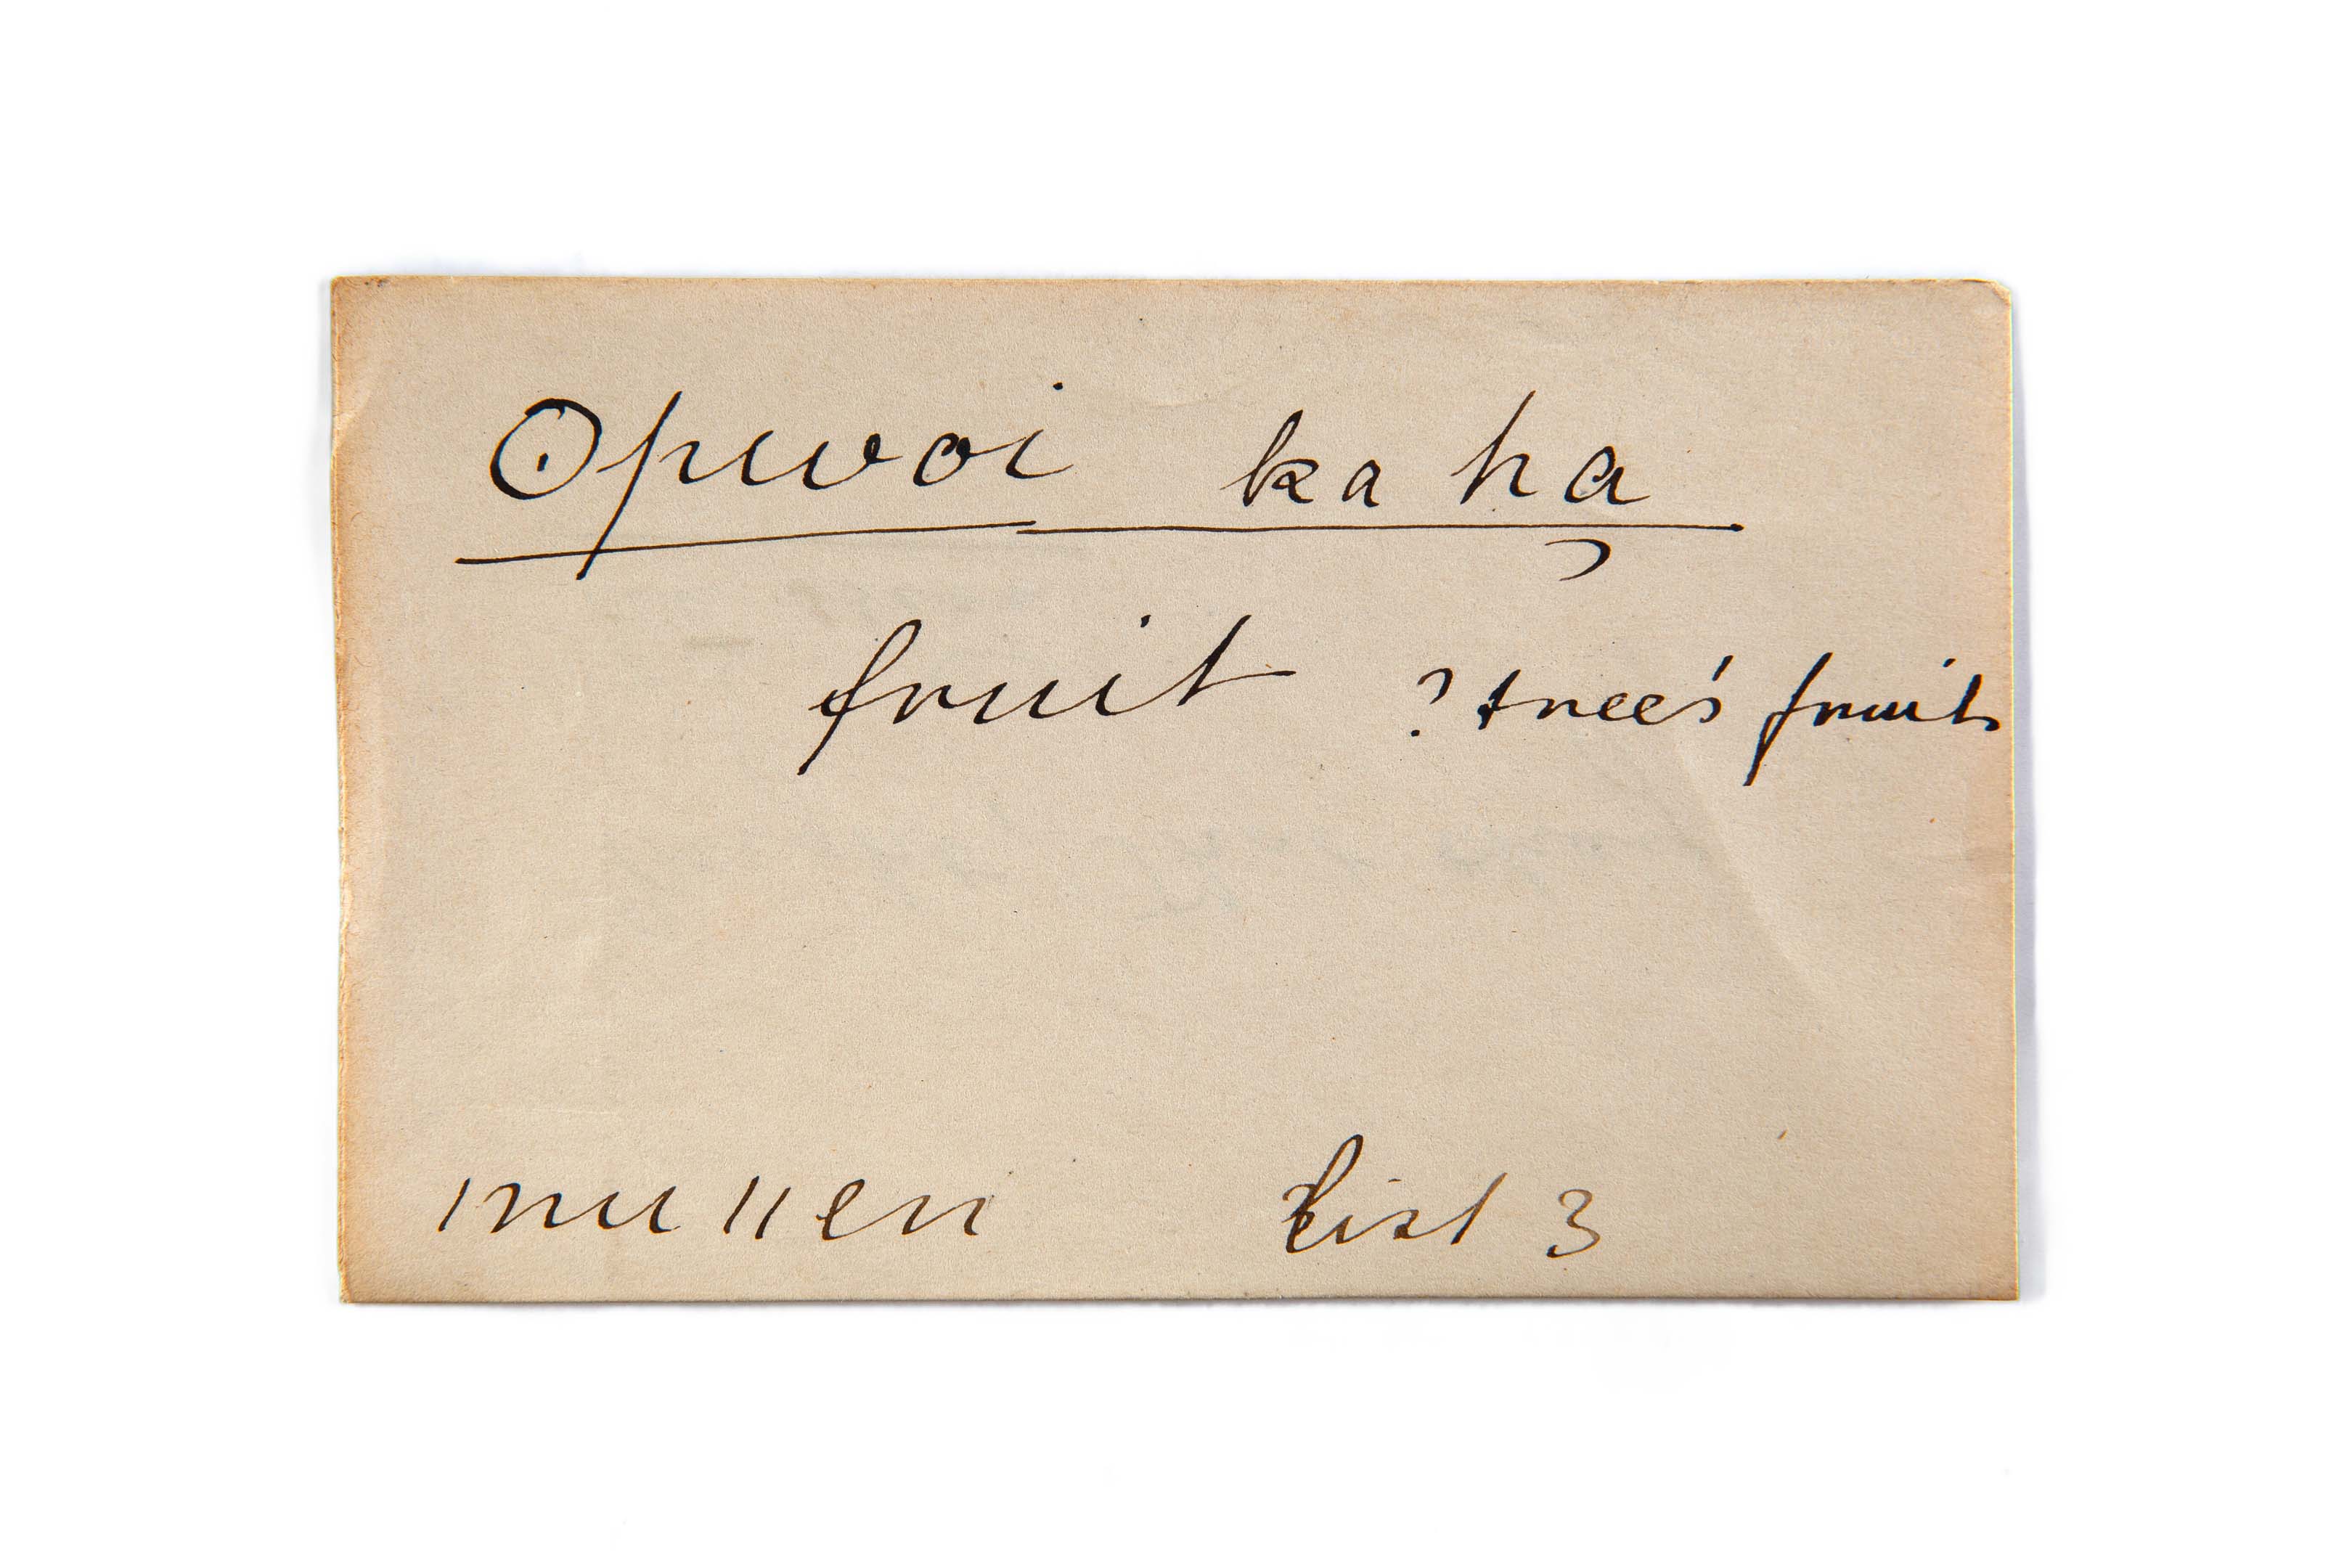 Opwoi ka hą
fruit ? tree's fruit
Mullen List 3